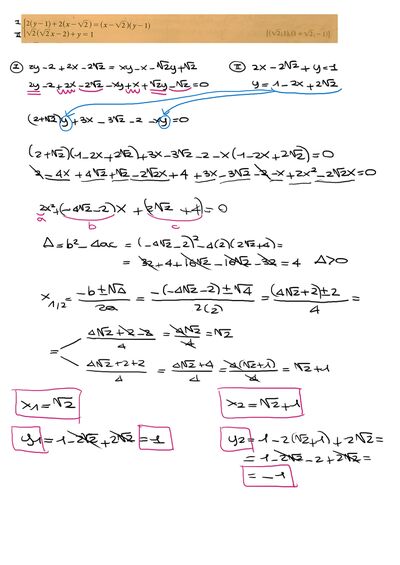 I {2(y−1)+2(x−√2)=(x−√2)(y−1)
II √2(√2x−2)+y=1 [(√2;1),(1+√2;−1)]
I 2y−2+2x−2√2=xy−x−√2y+√2 II 2x−2√2+y=1
2y−2+2x−2√2−xy+x+√2y−√2=0 y=1−2x+2√2
(2+√2)y+3x−3√2−2−xy=0
(2+√2)(1−2x+2√2)+3x−3√2−2−x(1−2x+2√2)=0
2−4x+4√2+√2−2√2x+4+3x−3√2−2−x+2x²−2√2x=0
2x²+(−4√2−2)x+(2√2+4)=0
a b c
Δ=b²−4ac=(−4√2−2)²−4(2)(2√2+4)=
=32+4+16√2−16√2−32=4 Δ>0
x1,2=−b±√Δ/2a=−(−4√2−2)±√4/2(2)=(4√2+2)±2/4=
=4√2+2−2/4=4√2/4=√2
4√2+2+2/4=4√2+4/4=4(√2+1)/4=√2+1
x1=√2 x2=√2+1
y1=1−2√2+2√2=1 y2=1−2(√2+1)+2√2=
=1−2√2−2+2√2=
=−1